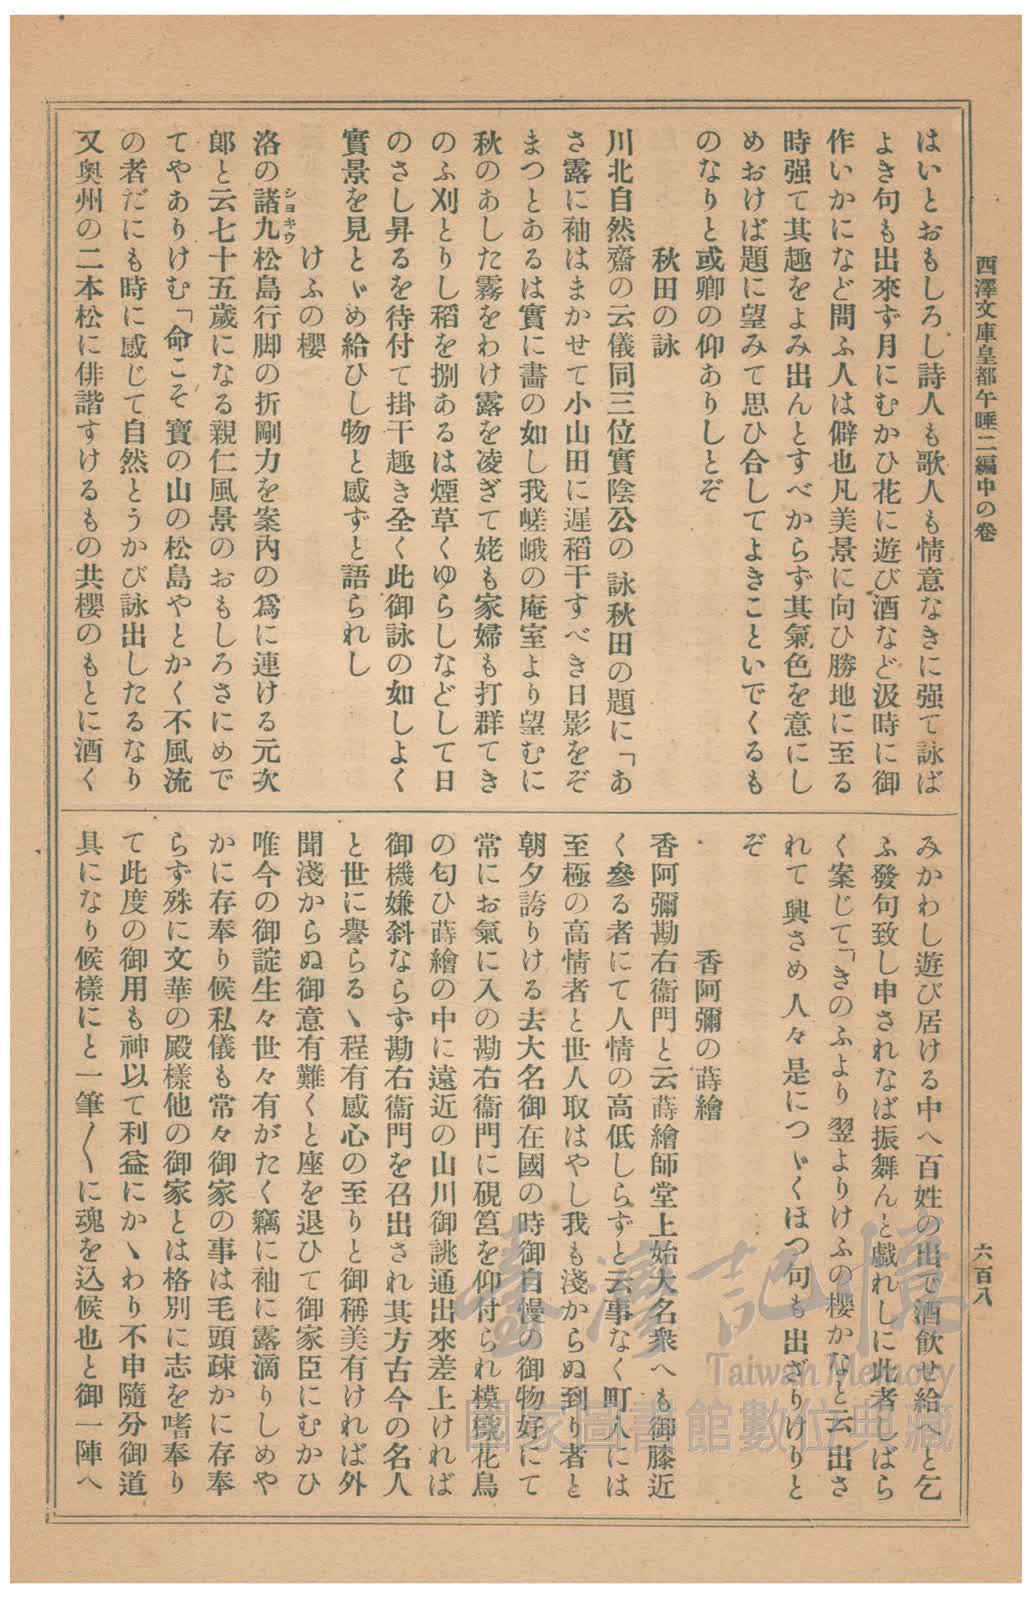 西澤文庫皇都午睡二編中の卷
六百八
はいとおもしろし詩人も歌人も情意なきに强て詠ば
よき句も出來ず月にむかひ花に遊び酒など汲時に御
作いかになど問ふ人は僻也凡美景に向ひ勝地に至る
時强て其趣をよみ出んとすべからず其氣色を意にし
めおけば題に望みて思ひ合してよきこといでくるも
のなりと或卿の仰ありしとぞ
秋田の詠
川北自然齋の云儀同三位實陰公の詠秋田の題に「あ
さ露に袖はまかせて小山田に遲稻干すべき日影をぞ
まつとあるは實に畵の如し我嵯峨の庵室より望むに
秋のあした霧をわけ露を凌ぎて姥も家婦も打群てき
のふ刈とりし稻を捌あるは煙草くゆらしなどして日
のさし昇るを待付て掛干趣き全く此御詠の如しよく
實景を見とゞめ給ひし物と感ずと語られし
けふの櫻
洛の諸九松島行脚の折剛力を案內の爲に連ける元次
シヨキウ
郞と云七十五歲になる親仁風景のおもしろさにめで
てやありけむ「命こそ寶の山の松島やとかく不風流
の者だにも時に感じて自然とうかび詠出したるなり
又奥州の二本松に俳諧すけるもの共櫻のもとに酒く
みかわし遊び居ける中へ百姓の出て酒飮せ給へと乞
ふ發句致し申されなば振舞んと戯れしに此者しばら
く案じて「きのふより翌よりけふの櫻かなと云出さ
れて興さめ人々是につゞくほつ句も出ざりけりと
ぞ
香阿彌の蒔繪
香阿彌勘右衞門と云蒔繪師堂上始大名衆へも御膝近
く參る者にて人情の高低しらずと云事なく町人には
至極の高情者と世人取はやし我も淺からぬ到り者と
朝夕誇りける去大名御在國の時御自慢の御物好にて
常にお氣に入の勘右衞門に硯筥を仰付られ模樣花鳥
の匂ひ蒔繪の中に遠近の山川御誂通出來差上ければ
御機嫌斜ならず勘右衞門を召出され其方古今の名人
と世に譽らるゝ程有感心の至りと御稱美有ければ外
聞淺からぬ御意有難くと座を退ひて御家臣にむかひ
唯今の御諚生々世々有がたく竊に袖に露滴りしめや
かに存奉り候私儀も常々御家の事は毛頭疎かに存奉
らず殊に文華の殿樣他の御家とは格別に志を嗜奉り
て此度の御用も神以て利益にかゝわり不申隨分御道
具になり候樣にと一筆〳〵に魂を込候也と御一陣へ
臺灣記憶
Taiwan Memory
國家圖書館數位典藏